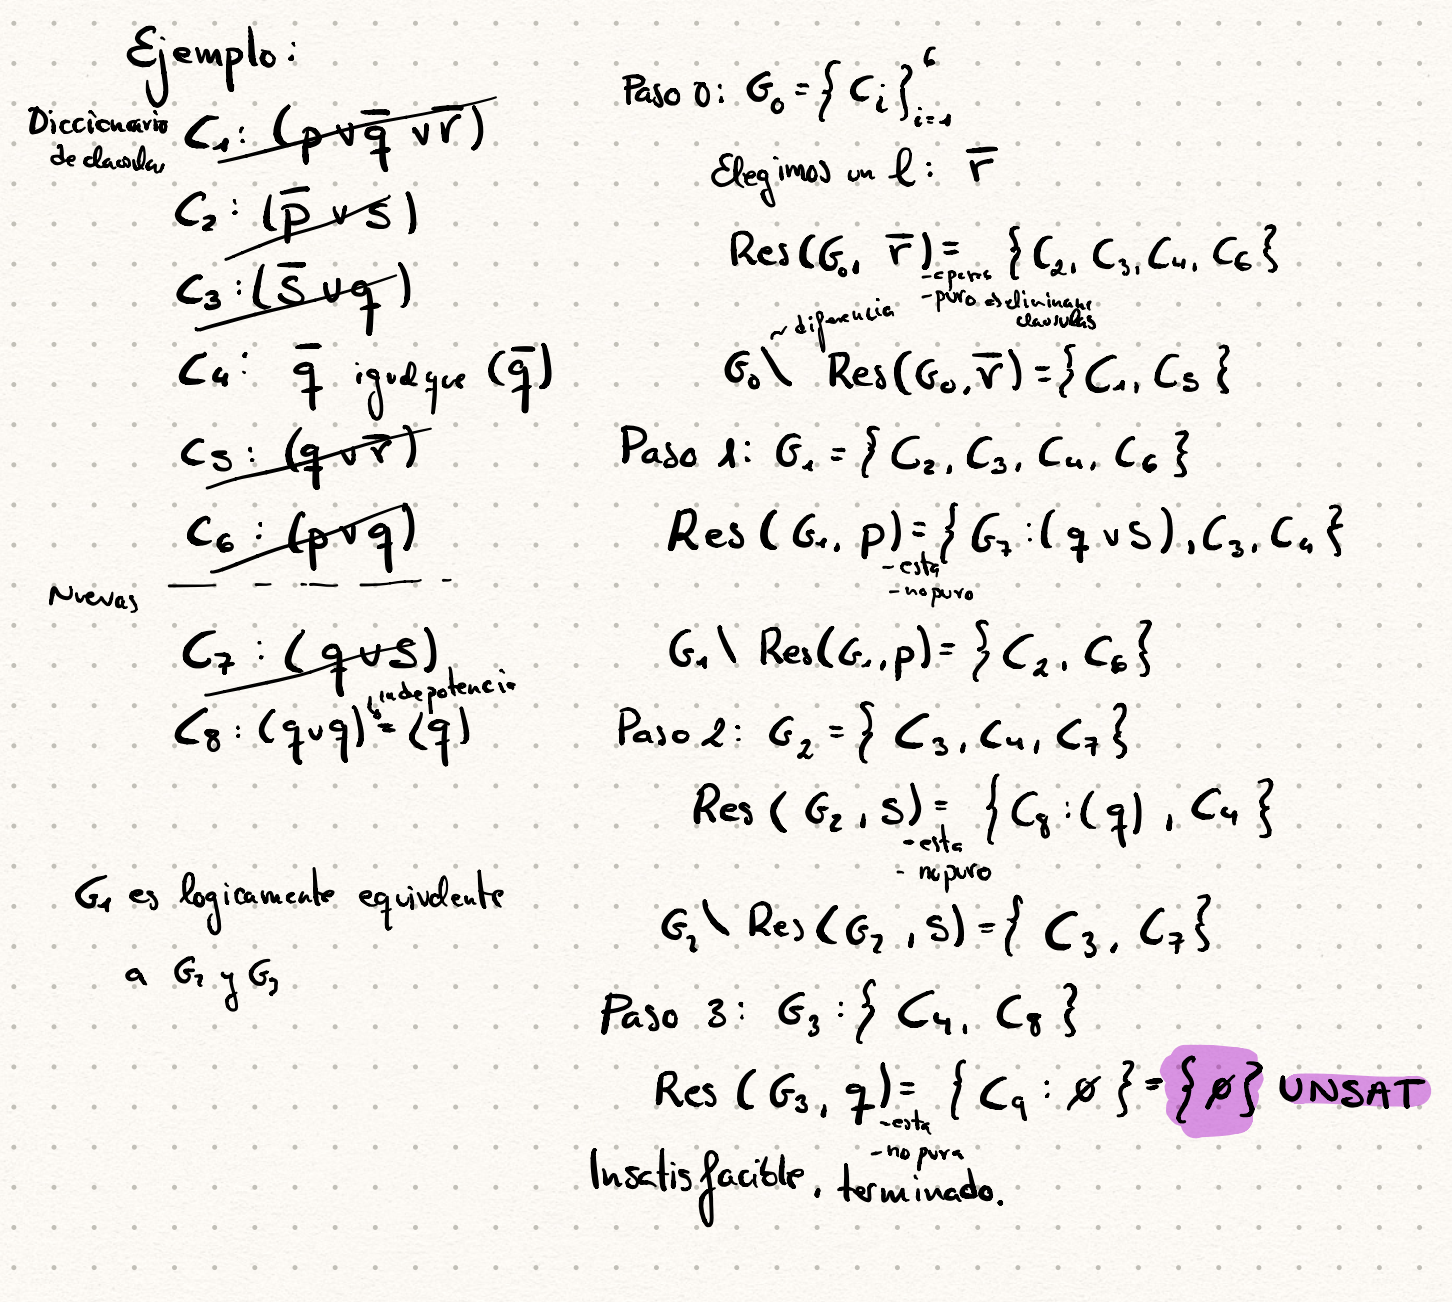 Ejemplo:
Diccionario
de clausulas
C₁: (p ∨ q̅ ∨ r̅)
C₂: (p̅ ∨ s)
C₃: (s̅ ∨ q)
C₄: q̅ igual que (q̅)
C₅: (q ∨ r̅)
C₆: (p ∨ q)
Nuevas
C₇: (q ∨ s)
indepotencia
C₈: (q ∨ q) = (q)
G₁ es logicamente equivalente
a G₂ y G₃
Paso 0: G₀ = { Cᵢ }⁶ᵢ₌₁
Elegimos un l: r̅
Res(G₀, r̅) = { C₂, C₃, C₄, C₆ }
- puro es eliminan
clausulas
~ diferencia
G₀ \ Res(G₀, r̅) = { C₁, C₅ }
Paso 1: G₁ = { C₂, C₃, C₄, C₆ }
Res(G₁, p) = { G₇: (q ∨ s), C₃, C₄ }
- esta
- no puro
G₁ \ Res(G₁, p) = { C₂, C₆ }
Paso 2: G₂ = { C₃, C₄, C₇ }
Res(G₂, s) = { C₈: (q), C₄ }
- esta
- no puro
G₂ \ Res(G₂, s) = { C₃, C₇ }
Paso 3: G₃: { C₄, C₈ }
Res(G₃, q) = { C₉: ∅ } = {∅} UNSAT
- esta
- no pura
Insatisfacible, terminado.